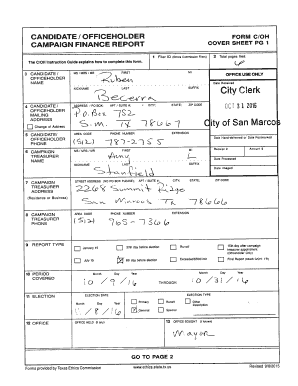 CANDIDATE / OFFICEHOLDER FORM C/OH
CAMPAIGN FINANCE REPORT COVER SHEET PG 1
The C/OH Instruction Guide explains how to complete this form.
2 Total pages filed:
4
3 CANDIDATE / OFFICEHOLDER NAME
MS / MRS / MR FIRST MI
Ruben
NICKNAME LAST SUFFIX
Becerra
OFFICE USE ONLY
Date Received
City Clerk
OCT 31 2016
City of San Marcos
4 CANDIDATE / OFFICEHOLDER MAILING ADDRESS
Change of Address
ADDRESS / PO BOX; APT / SUITE #; CITY; STATE; ZIP CODE
P.O. Box 752
S.M. TX 78667
5 CANDIDATE / OFFICEHOLDER PHONE
AREA CODE PHONE NUMBER EXTENSION
(512) 787-2755
Date Hand-delivered or Date Postmarked
Receipt # Amount $
Date Processed
Date Imaged
6 CAMPAIGN TREASURER NAME
MS / MRS / MR FIRST MI
Amy
NICKNAME LAST SUFFIX
Stanfield
7 CAMPAIGN TREASURER ADDRESS
(Residence or Business)
2268 Summit Ridge
San Marcos TX 78666
8 CAMPAIGN TREASURER PHONE
AREA CODE PHONE NUMBER EXTENSION
(512) 965-7366
9 REPORT TYPE
January 15
30th day before election
Runoff
15th day after campaign treasurer appointment (Officeholder Only)
July 15
8th day before election
Final Report
10 PERIOD COVERED
Month Day Year
10 / 9 / 16 THROUGH 10 / 31 / 16
11 ELECTION
ELECTION DATE
Month Day Year
11 / 8 / 16
ELECTION TYPE
Primary
Runoff
General
Special
12 OFFICE
OFFICE HELD (if any)
13 OFFICE SOUGHT (if known)
Mayor
GO TO PAGE 2
Forms provided by Texas Ethics Commission www.ethics.state.tx.us Revised